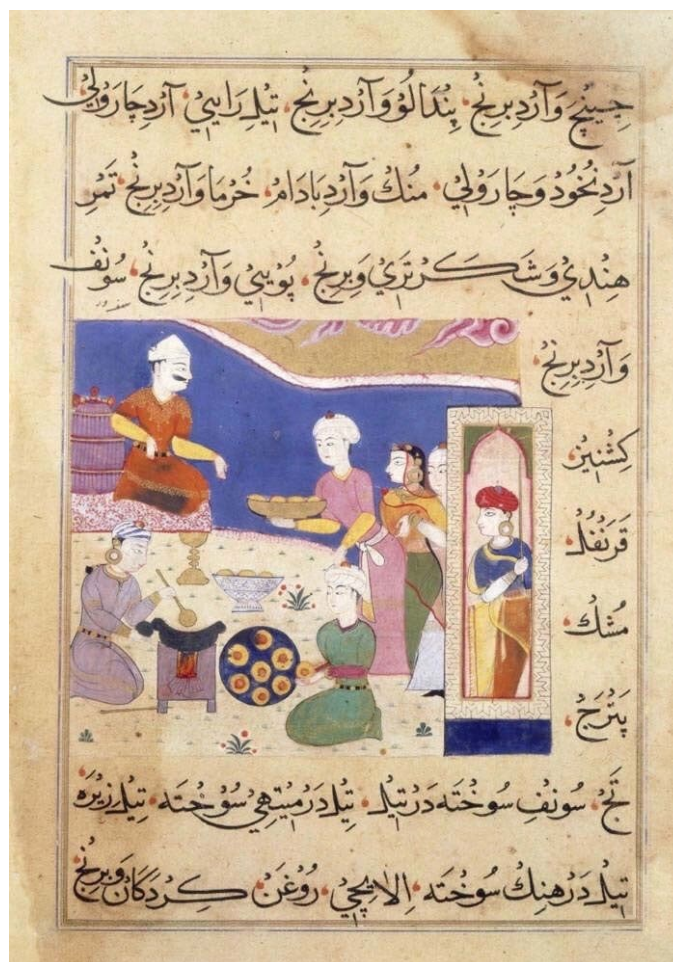 چینچ وَآردِ بِرِنْج، پِنْدالُوْ وَآردِ بِرِنْج، تیٖلِ رَایٖيْ، آردِ چارَوْلِيْ
آردِ نُخُوْد وَچارَوْلِيْ، مُنك وَآردِ بَادَامْ، خُرْمَا وَآردِ بِرِنْج، تَمْرِ
هِنْدِيْ وَشَکَر تَرِيْ وَبِرِنْج، پُوْیٖيْ وَآردِ بِرِنْج، سُوْنْف
وَآردِ بِرِنْج،
کِشْنِیْز،
قَرَنْفُل،
مُشْك،
پَتْرَج،
تَجْ، سُوْنْفِ سُوْخْتَه دَر تیٖل، تیٖل دَر میٖتْهِيْ سُوْخْتَه، تیٖلِ زیٖرَه
تیٖل دَر هِنْك سُوْخْتَه، اِلَایْچِيْ، رَوْغَنْ، کِردَکَان وَبِرِنْج